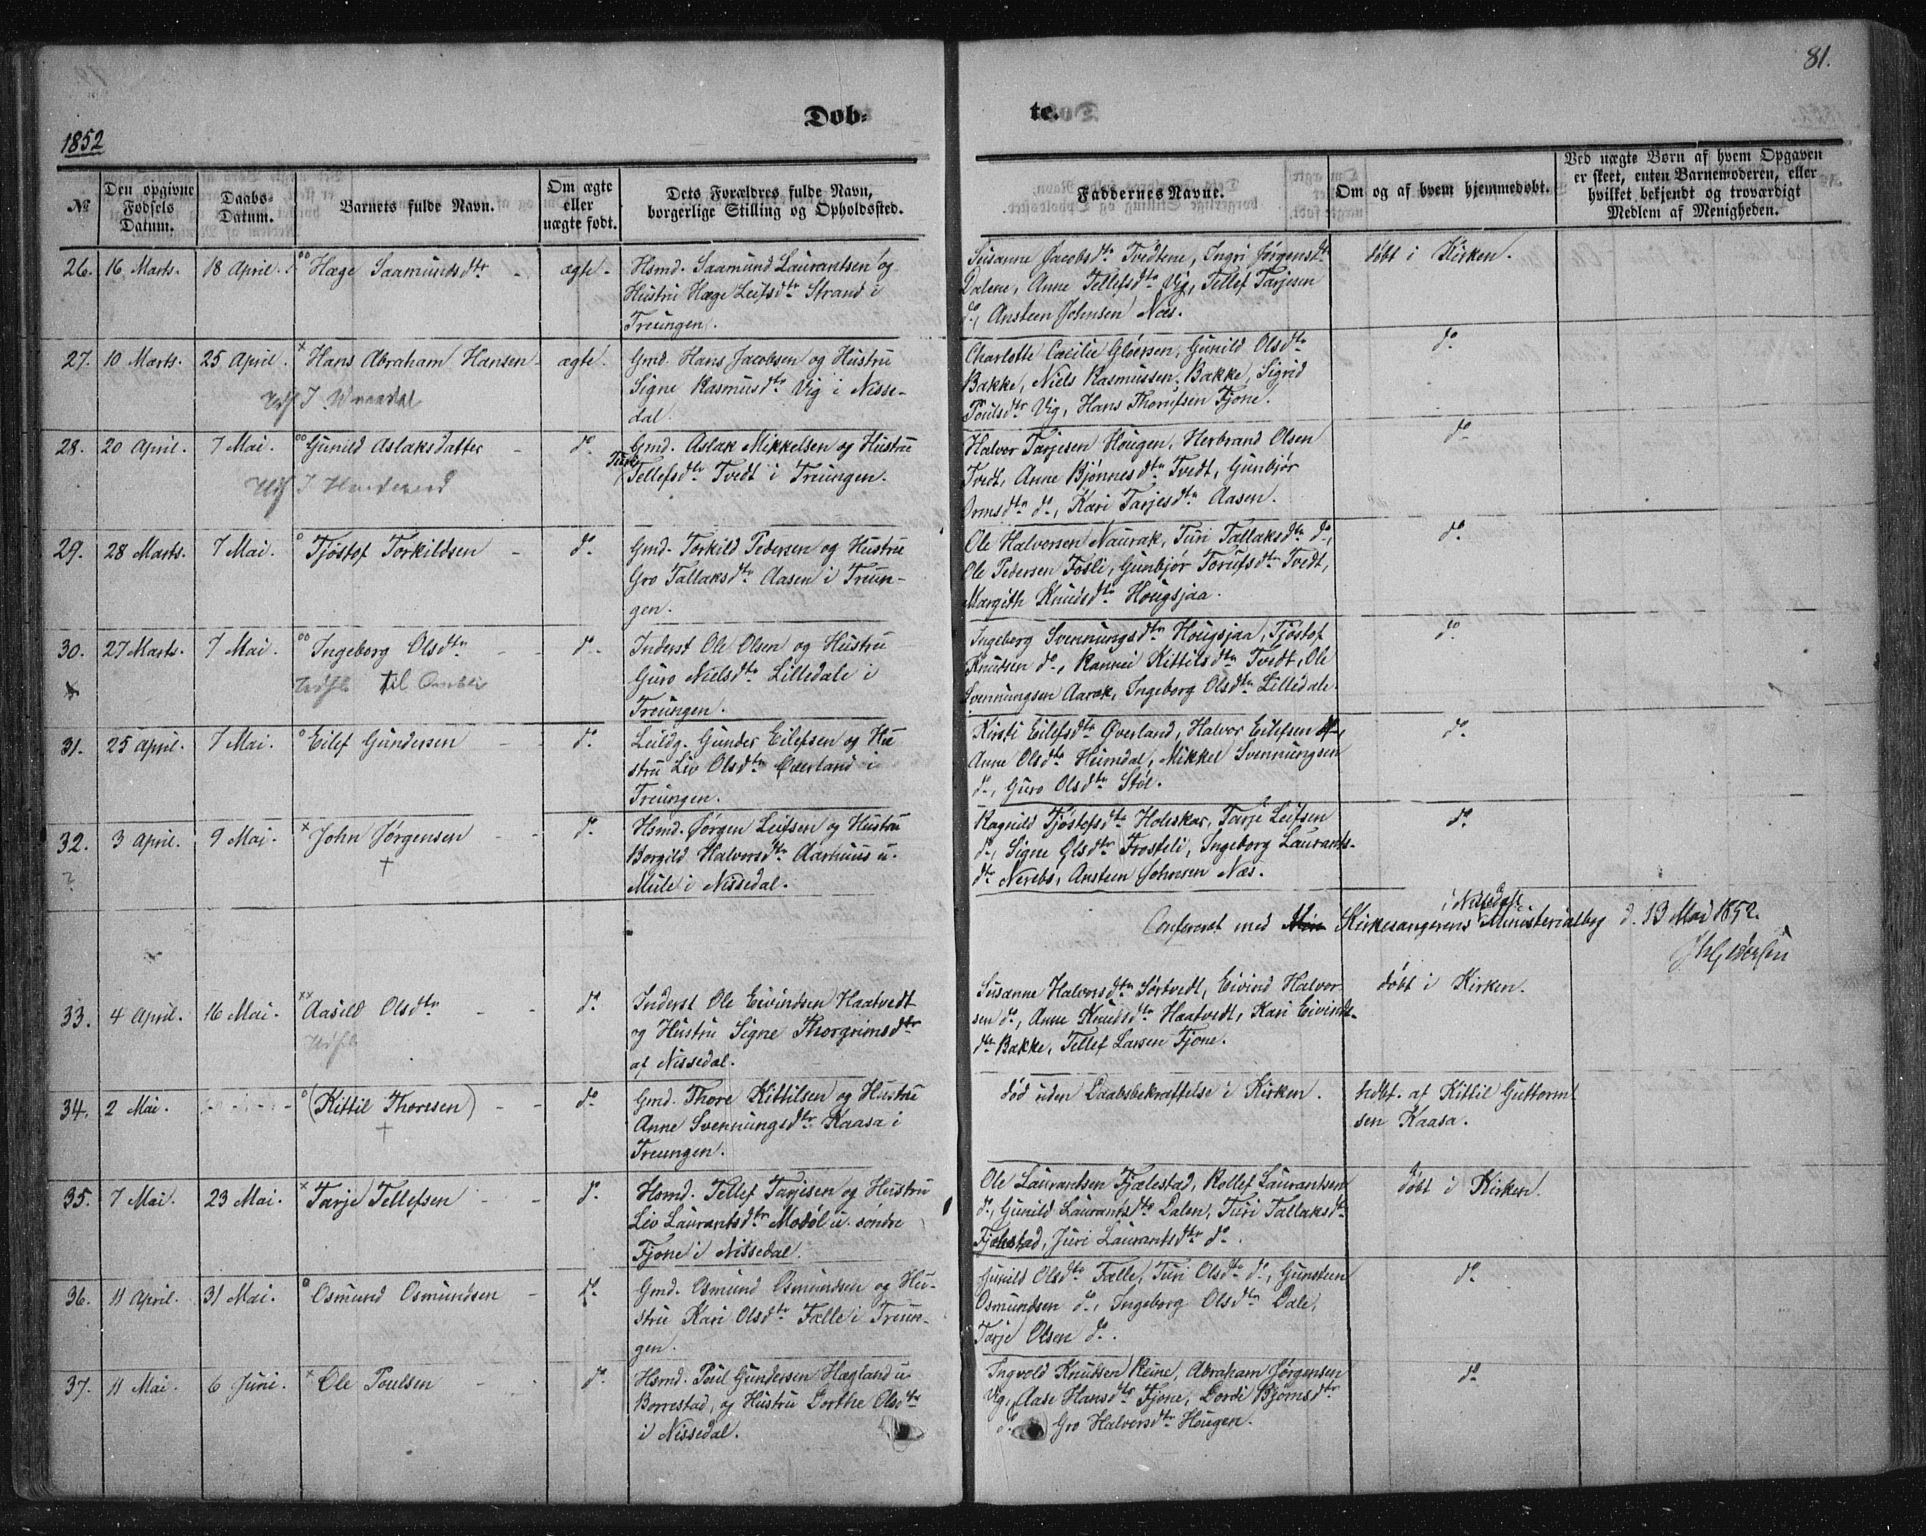 81.
Døb-
te.
1852
№
Den opgivne Fødsels Datum.
Daabs-Datum.
Barnets fulde Navn.
Om ægte eller uægte født.
Dets Forældres fulde Navn, borgerlige Stilling og Opholdssted.
Faddernes Navne.
Om og af hvem hjemmedøbt.
Ved uægte Børn af hvem Opgaven er skeet, enten Barnemoderen, eller hvilket bekjendt og troværdigt Medlem af Menigheden.
26. 16 Marts. 18 April. Hæge Saamundsdtr ægte.
Hsmd. Saamund Laurantsen og
Hustru Hæge Leifsdtr Strand i
Treungen.
Susanne Jacobsdtr Tvedtene, Ingri Jørgensdtr
Dalene, Anne Tellefsdtr Vig, Tellef Tarjesen
do, Ansteen Johnsen Næs.
døbt i Kirken.
27. 10 Marts. 25 April. × Hans Abraham Hansen ægte.
Gmd. Hans Jacobsen og Hustru
Signe Rasmusdtr Vig i Nisse-
dal.
Charlotte Cæcilie Gløersen, Gunild Olsdtr
Bakke, Niels Rasmussen Bakke, Sigrid
Poulsdtr Vig, Hans Thorufsen Fjone.
do
28. 20 April. 7 Mai. oo Gunild Aslaksdatter do
Gmd. Aslak Mikkelsen og Hustru
Turi
Tellefsdtr Tvedt i Treungen.
Halvor Tarjesen Hougen, Herbrand Olsen
Tvedt, Anne Bjønnesdtr Tvedt, Gunbjør
Ormsdtr do, Kari Tarjesdtr Aasen.
do
29. 28 Marts. 7 Mai. o Tjøstof Torkildsen do
Gmd. Torkild Pedersen og Hustru
Gro Tallaksdtr Aasen i Treun-
gen.
Ole Halvorsen Naurak, Turi Tallaksdtr do,
Ole Pedersen Fosli, Gunbjør Torufsdtr Tvedt,
Margith Knudsdtr Hougsjaa.
do
30. 27 Marts. 7 Mai. oo Ingeborg Olsdtr do
Inderst Ole Olsen og Hustru
Guro Nielsdtr Lilledale i
Treungen.
Ingeborg Svenningsdtr Hougsjaa, Tjøstof
Knudsen do, Rannei Kittilsdtr Tvedt, Ole
Svenningsen Aarak, Ingeborg Olsdtr Lilledale.
do
31. 25 April. 7 Mai. o Eilef Gundersen do
Leildg. Gunder Eilefsen og Hu
stru Liv Olsdtr Øverland i
Treungen.
Kirsti Eilefsdtr Øverland, Halvor Eilefsen
Anne Olsdtr Heimdal, Mikkel Svennungsen
do, Guro Olsdtr Støl.
do
32. 3 April. 9 Mai. × John Jørgensen do
Hsmd. Jørgen Leifsen og Hustru
Borgild Halvorsdtr Aarhuus u.
Mule i Nissedal.
Ragnild Tjøstofsdtr Holeskar, Tarje Leifsen
do, Signe Olsdtr Frosteli, Ingeborg Laurants-
dtr Nerebø, Ansteen Johnsen Næs.
do
i Nissedal
Confereret med Kirkesangerens Ministerialbog d. 13 Mai 1852.
33. 4 April. 16 Mai. ×× Aasild Olsdtr do
Inderst Ole Eivindsen Haatvedt
og Hustru Signe Thorgrimsdtr
af Nissedal.
Susanne Halvorsdtr Sørtvedt, Eivind Halvor-
sen do, Anne Knudsdtr Haatvedt, Kari Eivinds-
dtr Bakke, Tellef Larsen Fjone.
døbt i Kirken.
34. 2 Mai. o (Kittil Thoresen) do
Gmd. Thore Kittilsen og Hustru
Anne Svenningsdtr Kaasa i
Treungen.
død uden Daabsbekræftelse i Kirken.
hdbt. af Kittil Guttorm
sen Kaasa.
35. 7 Mai. 23 Mai. × Tarje Tellefsen do
Hsmd. Tellef Tarjesen og Hustru
Liv Laurantsdtr Modøl u. søndre
Fjone i Nissedal.
Ole Laurantsen Fjælestad, Rollef Laurantsen
do, Gunild Laurantsdtr Dalen, Turi Tallaksdtr
Fjælestad, Juri Laurantsdtr do.
døbt i Kirken.
36. 11 April. 31 Mai. o Osmund Osmundsen do
Gmd. Osmund Osmundsen og Hu-
stru Kari Olsdtr Fælle i Treun-
gen.
Gunild Olsdtr Fælle, Turi Olsdtr do, Gunsteen
Osmundsen do, Ingeborg Olsdtr Dale,
Tarje Olsen do.
do
37. 11 Mai. 6 Juni. × Ole Poulsen do
Hsmd. Poul Gundersen Hægland u.
Borrestad, og Hustru Dorthe Olsdtr
i Nissedal.
Ingvold Knutsen Reine, Abraham Jørgensen
Vig, Aase Hansdtr Fjone, Dordi Bjørnsdtr
do. Gro Halvorsdtr Hougen.
do